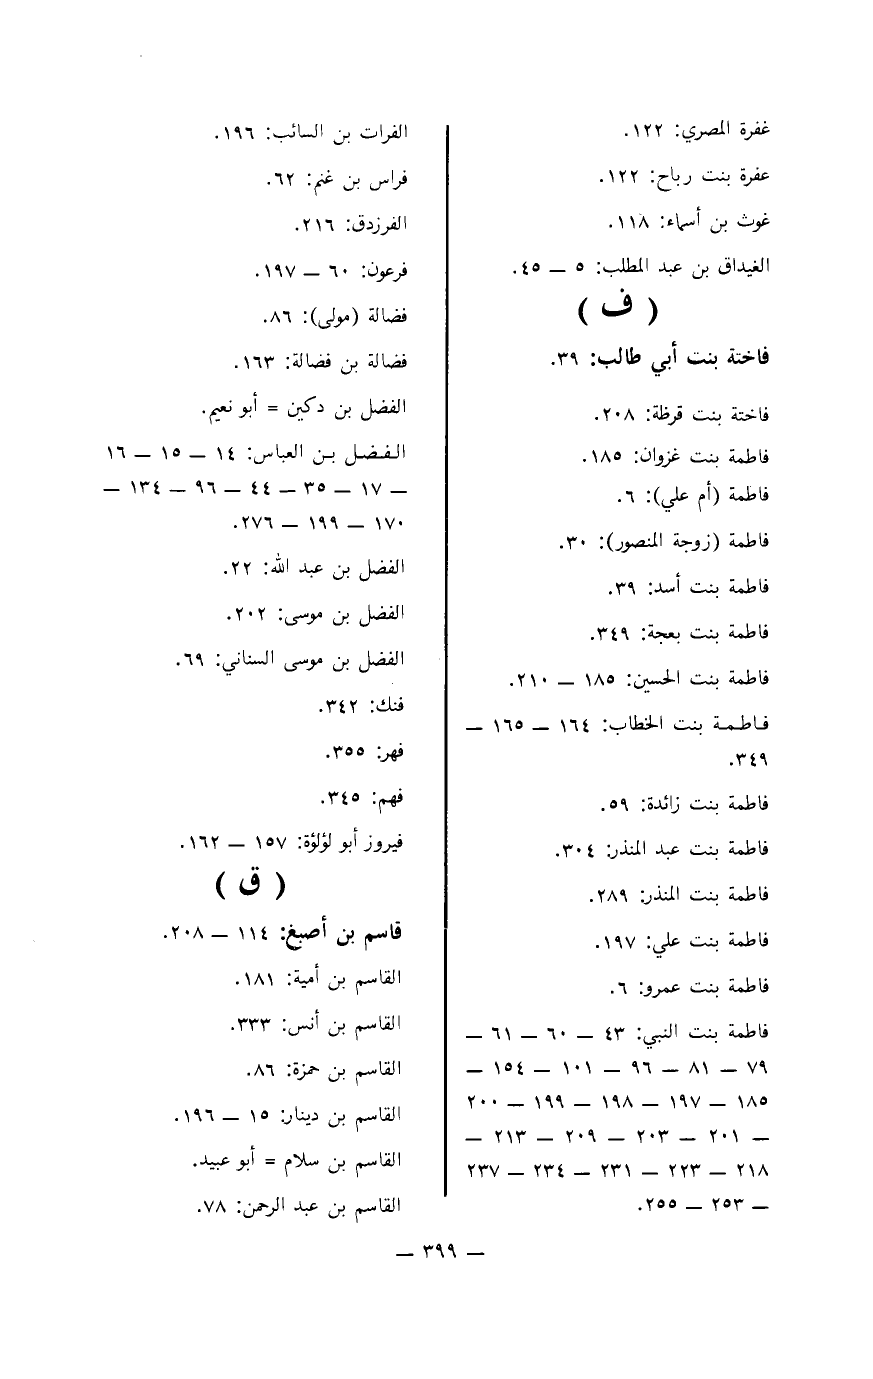 غفرة المصري: ١٢٢.
عفرة بنت رباح: ١٢٢.
غوث بن أسماء: ١١٨.
الغيداق بن عبد المطلب: ٥ — ٤٥.
( ف )
فاختة بنت أبي طالب: ٣٩.
فاختة بنت قرظة: ٢٠٨.
فاطمة بنت غزوان: ١٨٥.
فاطمة (أم علي): ٦.
فاطمة (زوجة المنصور): ٣٠.
فاطمة بنت أسد: ٣٩.
فاطمة بنت بعجة: ٣٤٩.
فاطمة بنت الحسين: ١٨٥ — ٢١٠.
فاطمة بنت الخطاب: ١٦٤ — ١٦٥ —
٣٤٩.
فاطمة بنت زائدة: ٥٩.
فاطمة بنت عبد المنذر: ٣٠٤.
فاطمة بنت المنذر: ٢٨٩.
فاطمة بنت علي: ١٩٧.
فاطمة بنت عمرو: ٦.
فاطمة بنت النبي: ٤٣ — ٦٠ — ٦١ —
٧٩ — ٨١ — ٩٦ — ١٠١ — ١٥٤ —
١٨٥ — ١٩٧ — ١٩٨ — ١٩٩ — ٢٠٠
— ٢٠١ — ٢٠٣ — ٢٠٩ — ٢١٣ —
٢١٨ — ٢٢٣ — ٢٣١ — ٢٣٤ — ٢٣٧
— ٢٥٣ — ٢٥٥.
الفرات بن السائب: ١٩٦.
فراس بن غنم: ٦٢.
الفرزدق: ٢١٦.
فرعون: ٦٠ — ١٩٧.
فضالة (مولى): ٨٦.
فضالة بن فضالة: ١٦٣.
الفضل بن دكين = أبو نعيم.
الفضل بن العباس: ١٤ — ١٥ — ١٦
— ١٧ — ٣٥ — ٤٤ — ٩٦ — ١٣٤ —
١٧٠ — ١٩٩ — ٢٧٦.
الفضل بن عبد الله: ٢٢.
الفضل بن موسى: ٢٠٢.
الفضل بن موسى السناني: ٦٩.
فنك: ٣٤٢.
فهر: ٣٥٥.
فهم: ٣٤٥.
فيروز أبو لؤلؤة: ١٥٧ — ١٦٢.
( ق )
قاسم بن أصبغ: ١١٤ — ٢٠٨.
القاسم بن أمية: ١٨١.
القاسم بن أنس: ٣٣٣.
القاسم بن حمزة: ٨٦.
القاسم بن دينار: ١٥ — ١٩٦.
القاسم بن سلام = أبو عبيد.
القاسم بن عبد الرحمن: ٧٨.
— ٣٩٩ —